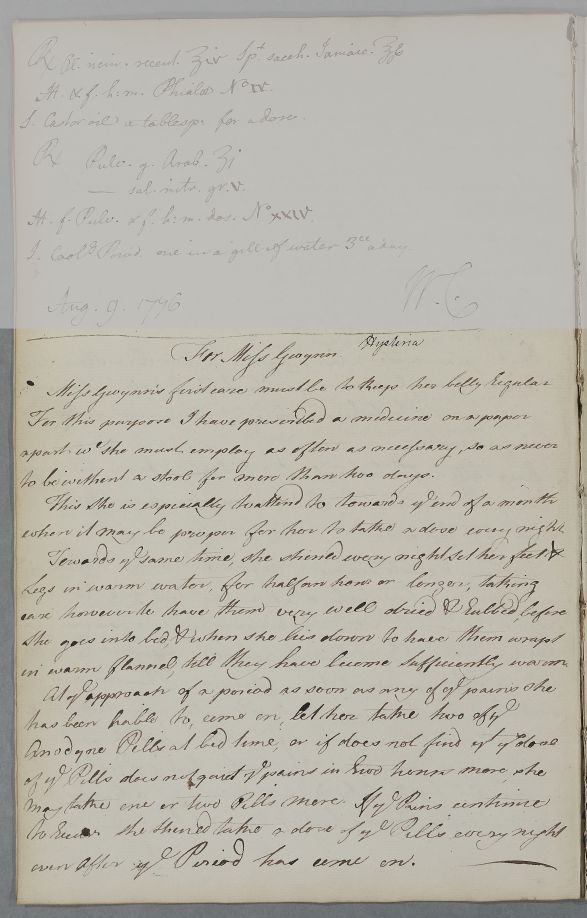 ℞ Ol. ricin. recent. ℥iv Spt. sacch. Jamaic. ℥ß
M. & f. h: m. Phialæ No IV.
S. Castor oil a tablesp. for a dose.
℞ Pulv. g. Arab. ʒj
— sal. nitr. gr. V.
M. f. Pulv. & f. h: m. dos. No XXIV.
S. Coolg Powd. one in a gill of water 3ce a day
Aug. 9. 1796 W. C.
For Miss Gwynn Hysteria
Miss Gwynn's first care must be to keep her belly regular
For this purpose I have prescribed a medicine on a paper
apart wh she must employ as often as necessary, so as never
to be without a stool for more than two days.
This she is especially to attend to towards ye end of a month
when it may be proper for her to take a dose every night
Towards ye same time, she should every night set her feet &
Legs in warm water, for half an hour or longer, taking
care however to have them very well dried & rubbed before
she goes into bed & when she lies down to have them wrapt
in warm flannel, till they have become sufficiently warm
At ye approach of a period as soon as any of ye pains she
has been liable to, come on, let her take two of ye
Anodyne Pills at bed time, or if does not find yt ye dose
of ye Pills does not quiet ye pains in two hours more, she
may take one or two Pills more. If ye Pains continue
to recur she should take a dose of ye Pills every night
even after ye Period has come on.